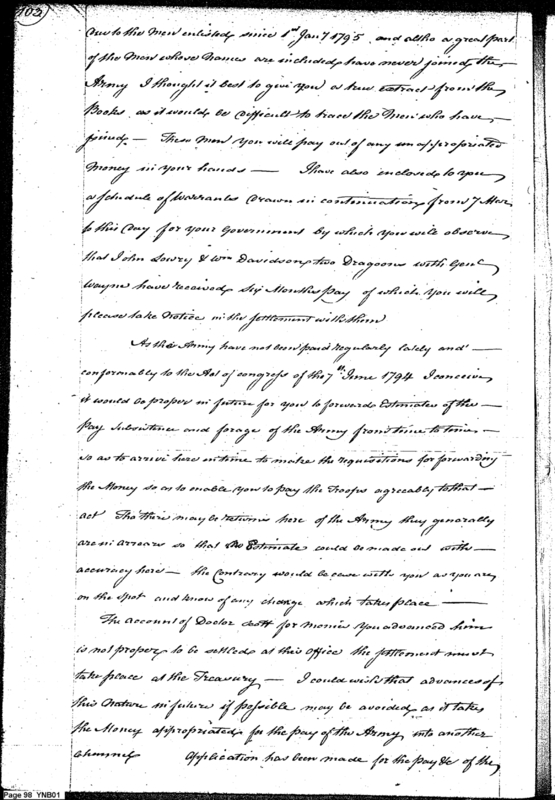 103
due to the Men enlisted since 1st Jany 1795 and altho a great part
of the Men whose Names are included have never joined the
Army I thought it best to give you a true extract from the
Books as it would be difficult to trace the Men who have
joined — These Men you will pay out of any unappropriated
Money in your hands — I have also enclosed to you
a Schedule of Warrants drawn in continuation from 7
to this Day for your Government by which you will observe
that John Lowry & Wm Davidson two Dragoons with Genl
Wayne have received Six Months pay of which you will
please take Notice in the settlement with them
As the Army have not been paid regularly lately and —
conformably to the Act of Congress of the 7th June 1794 I conceive
it would be proper in future for you to forward Estimates of the —
Pay Subsistence and forage of the Army from time to time —
so as to arrive here in time to make the requisitions for forwarding
the Money so as to enable you to pay the Troops agreeably to that —
act Tho there may be returns here of the Army they generally
are in arrears so that no Estimate could be made out with —
accuracy here — the Contrary would be case with you as you are
on the Spot and know of any change which takes place —
The account of Doctor Scott for monies you advanced him
is not proper to be settled at this Office the settlement must
take place at the Treasury — I could wish that advances of
this Nature in future if possible may be avoided as it takes
the Money appropriated for the pay of the Army into another
Channel Application has been made for the pay &c of the
Page 98 YNB01